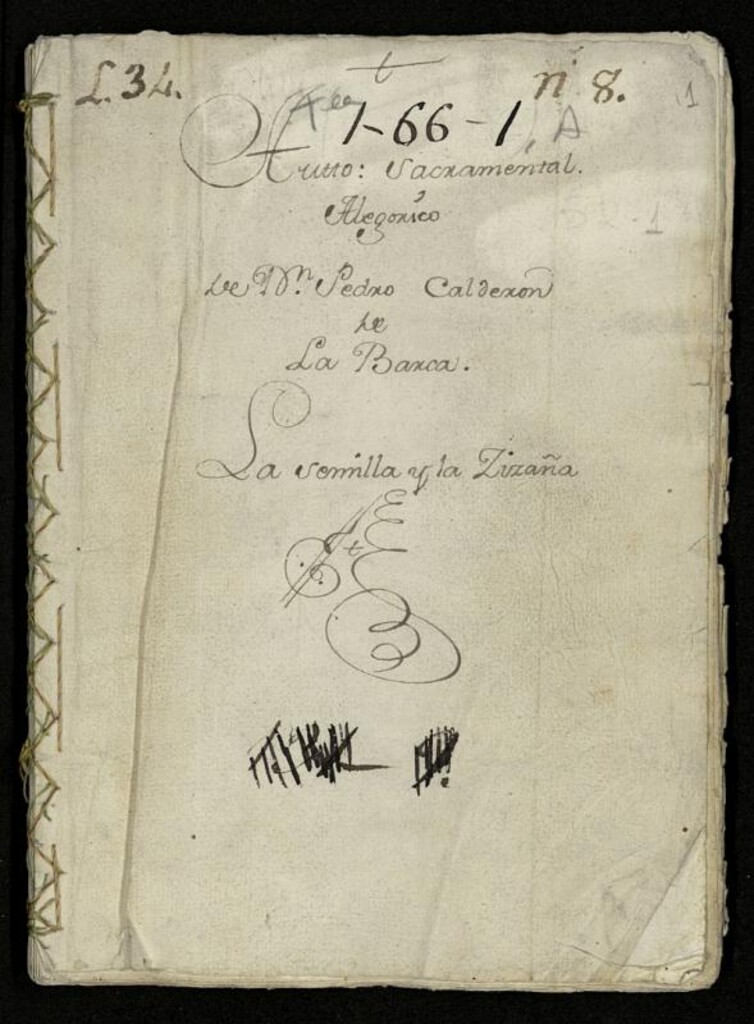 t
L.34. n 8. 1
1-66-1, A
Autto: Sacramental.
Alegorico
de Dn. Pedro Calderon
de
La Barca.
La semilla y la Zizaña